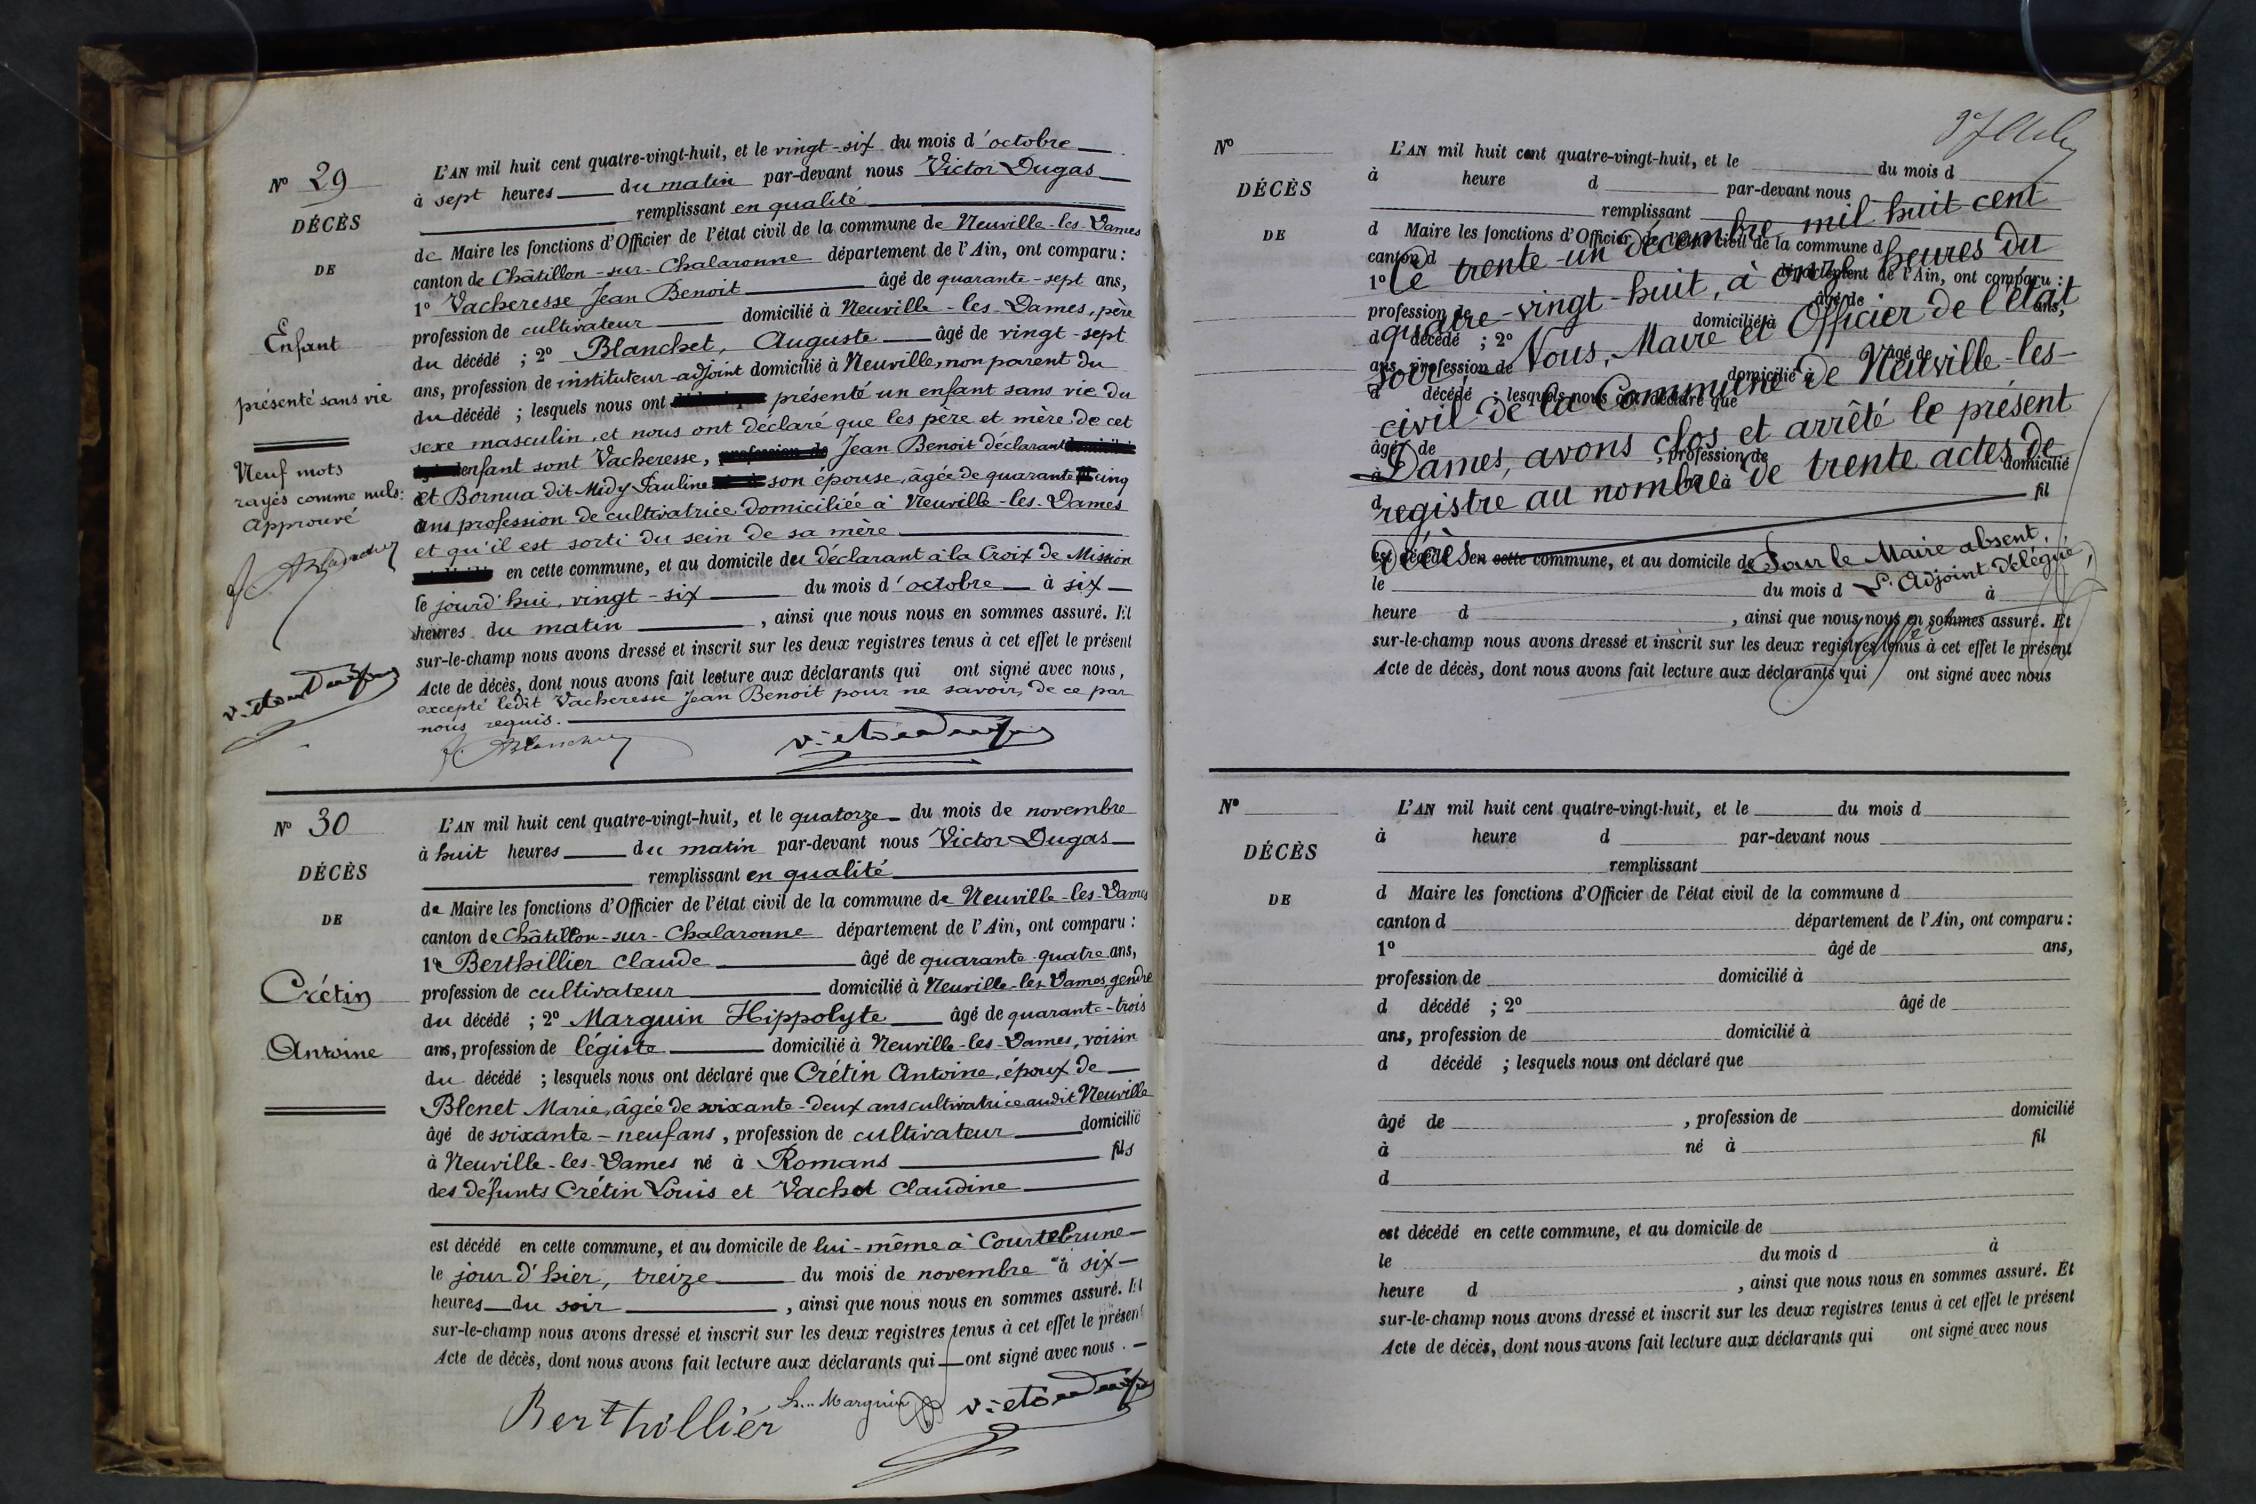 N° 29
DÉCÈS
DE
Enfant
présenté sans vie
Neuf mots
rayés comme nuls:
Approuvé
L'AN mil huit cent quatre-vingt-huit, et le vingt-six du mois d'octobre
à sept heures du matin par-devant nous Victor Dugas
remplissant en qualité
de Maire les fonctions d'Officier de l'état civil de la commune de Neuville-les-Dames
canton de Châtillon-sur-Chalaronne département de l'Ain, ont comparu :
1° Vacheresse Jean Benoit âgé de quarante-sept ans,
profession de cultivateur domicilié à Neuville-les-Dames, père
du décédé ; 2° Blanchet, Auguste âgé de vingt-sept
ans, profession de instituteur-adjoint domicilié à Neuville, non parent du
du décédé ; lesquels nous ont présenté un enfant sans vie du
sexe masculin, et nous ont déclaré que les père et mère de cet
enfant sont Vacheresse, profession de Jean Benoit déclarant
et Bornua dit Midy Pauline son épouse, âgée de quarante cinq
ans profession de cultivatrice domiciliée à Neuville-les-Dames
et qu'il est sorti du sein de sa mère
en cette commune, et au domicile du déclarant à la Croix de Mission
le jourd'hui, vingt-six du mois d'octobre à six
heures du matin , ainsi que nous nous en sommes assuré. Et
sur-le-champ nous avons dressé et inscrit sur les deux registres tenus à cet effet le présent
Acte de décès, dont nous avons fait lecture aux déclarants qui ont signé avec nous,
excepté ledit Vacheresse Jean Benoit pour ne savoir, de ce par
nous requis.
A Blanchet
N° 30
DÉCÈS
DE
Crétin
Antoine
L'AN mil huit cent quatre-vingt-huit, et le quatorze du mois de novembre
à huit heures du matin par-devant nous Victor Dugas
remplissant en qualité
de Maire les fonctions d'Officier de l'état civil de la commune de Neuville-les-Dames
canton de Châtillon-sur-Chalaronne département de l'Ain, ont comparu :
1° Berthillier Claude âgé de quarante-quatre ans,
profession de cultivateur domicilié à Neuville-les-Dames, gendre
du décédé ; 2° Marguin Hippolyte âgé de quarante-trois
ans, profession de légiste domicilié à Neuville-les-Dames, voisin
du décédé ; lesquels nous ont déclaré que Crétin Antoine, époux de
Blenet Marie, âgée de soixante-deux ans cultivatrice audit Neuville
âgé de soixante-neuf ans, profession de cultivateur domicilié
à Neuville-les-Dames né à Romans fils
des défunts Crétin Louis et Vachot Claudine
est décédé en cette commune, et au domicile de lui-même à Courtebrune
le jour d'hier, treize du mois de novembre à six
heures du soir , ainsi que nous nous en sommes assuré. Et
sur-le-champ nous avons dressé et inscrit sur les deux registres tenus à cet effet le présent
Acte de décès, dont nous avons fait lecture aux déclarants qui ont signé avec nous.
Berthillier h. Marguin
N°
DÉCÈS
DE
L'AN mil huit cent quatre-vingt-huit, et le du mois d
à heure d par-devant nous
remplissant
d Maire les fonctions d'Officier de l'état civil de la commune d
canton d département de l'Ain, ont comparu :
1° âgé de ans,
profession de domicilié à
d décédé ; 2° âgé de
ans, profession de domicilié à
d décédé ; lesquels nous ont déclaré que
âgé de , profession de domicilié
à né à
d fil
est décédé en cette commune, et au domicile de
le du mois d à
heure d , ainsi que nous nous en sommes assuré. Et
sur-le-champ nous avons dressé et inscrit sur les deux registres tenus à cet effet le présent
Acte de décès, dont nous avons fait lecture aux déclarants qui ont signé avec nous
Ce trente-un décembre mil huit cent
quatre-vingt-huit, à onze heures du
soir Nous, Maire et Officier de l'état
civil de la Commune de Neuville-les-
Dames, avons clos et arrêté le présent
registre au nombre de trente actes de
décès
Pour le Maire absent,
L'Adjoint délégué,
N°
DÉCÈS
DE
L'AN mil huit cent quatre-vingt-huit, et le du mois d
à heure d par-devant nous
remplissant
d Maire les fonctions d'Officier de l'état civil de la commune d
canton d département de l'Ain, ont comparu :
1° âgé de ans,
profession de domicilié à
d décédé ; 2° âgé de
ans, profession de domicilié à
d décédé ; lesquels nous ont déclaré que
âgé de , profession de domicilié
à né à fil
d
est décédé en cette commune, et au domicile de
le du mois d à
heure d , ainsi que nous nous en sommes assuré. Et
sur-le-champ nous avons dressé et inscrit sur les deux registres tenus à cet effet le présent
Acte de décès, dont nous avons fait lecture aux déclarants qui ont signé avec nous